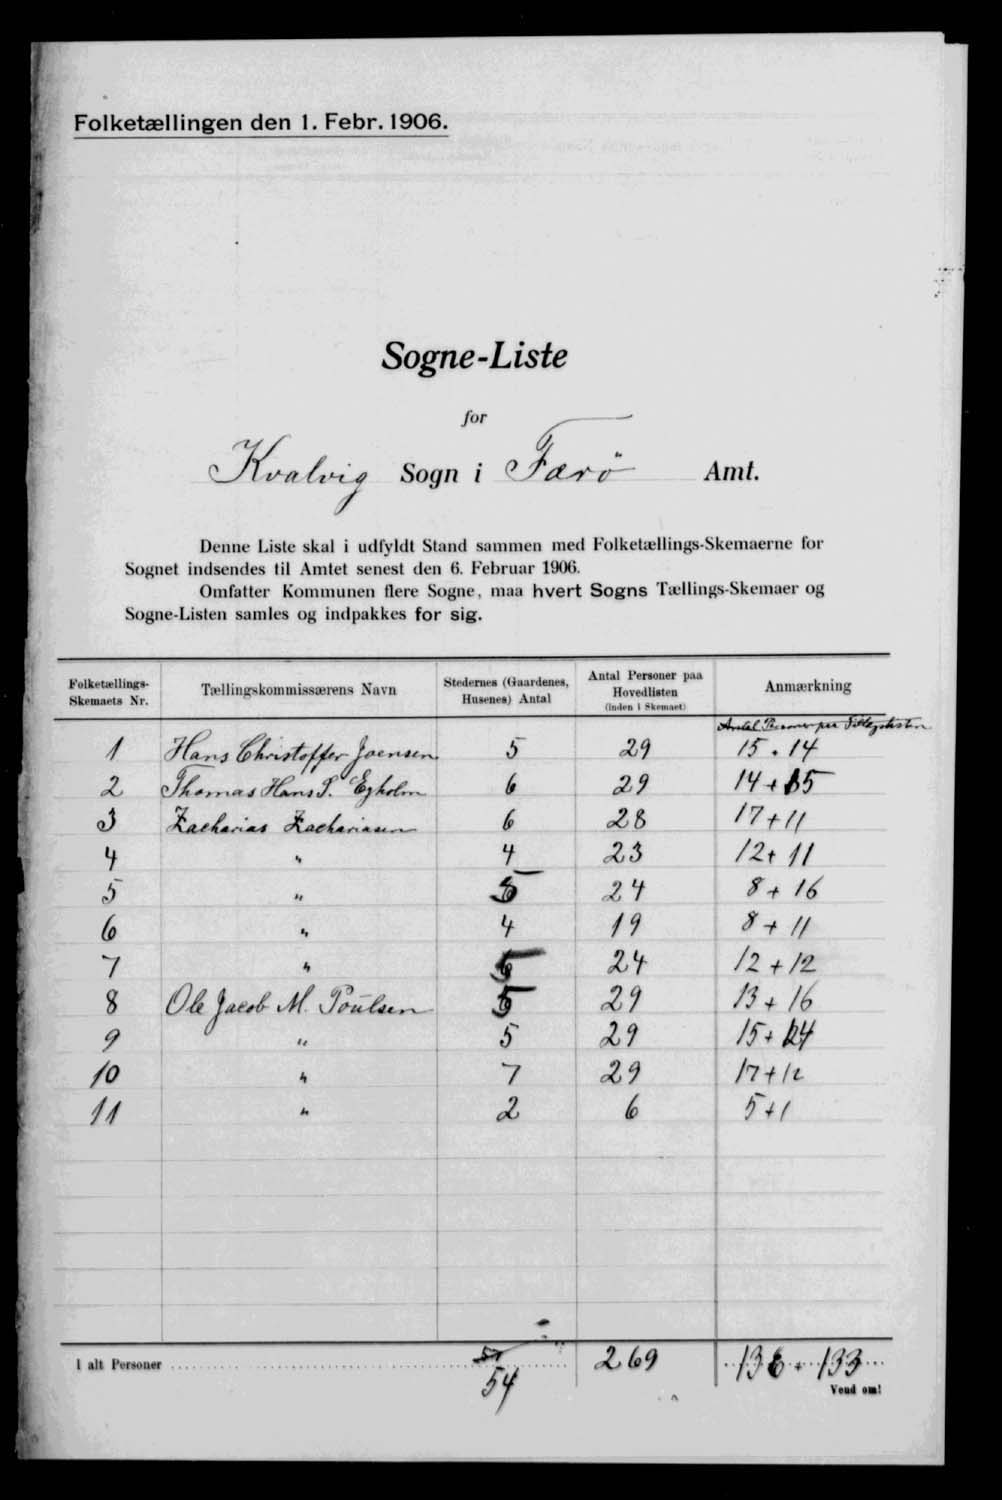 Folketællingen den 1. Febr. 1906.
Sogne-Liste
for
Kvalvig Sogn i Færö Amt.
Denne Liste skal i udfyldt Stand sammen med Folketællings-Skemaerne for
Sognet indsendes til Amtet senest den 6. Februar 1906.
Omfatter Kommunen flere Sogne, maa hvert Sogns Tællings-Skemaer og
Sogne-Listen samles og indpakkes for sig.
Folketællings-Skemaets Nr. Tællingskommissærens Navn Stedernes (Gaardenes, Husenes) Antal Antal Personer paa Hovedlisten (inden i Skemaet) Anmærkning
Antal Personer paa
1 Hans Christoffer Joensen 5 29 15 + 14
2 Thomas Hans P. Egholm 6 29 14 + 15
3 Zacharias Zachariasen 6 28 17 + 11
4 " 4 23 12 + 11
5 " 5 24 8 + 16
6 " 4 19 8 + 11
7 " 5 24 12 + 12
8 Ole Jacob M. Poulsen 5 29 13 + 16
9 " 5 29 15 + 14
10 " 7 29 17 + 12
11 " 2 6 5 + 1
I alt Personer 54 269 136 + 133
Vend om!